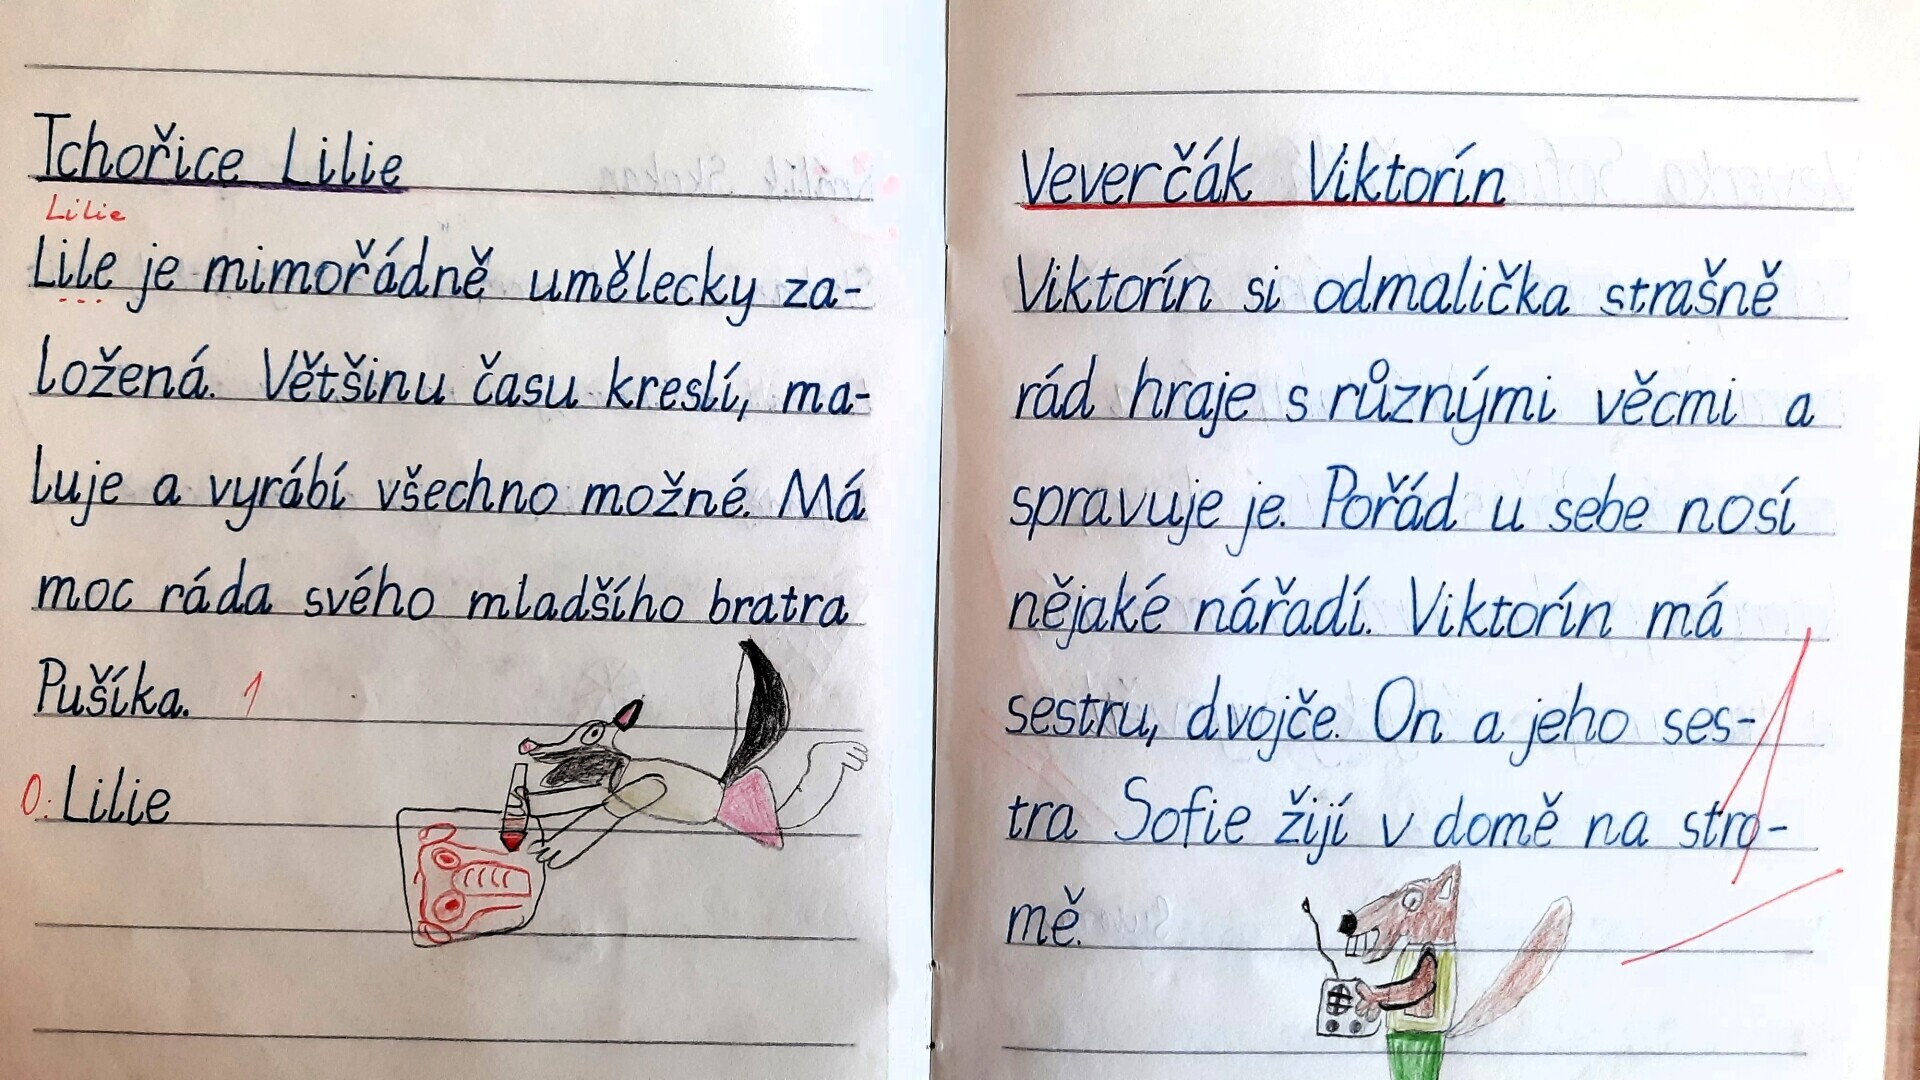 Tchořice Lilie
Lilie
Lile je mimořádně umělecky za-
ložená. Většinu času kreslí, ma-
luje a vyrábí všechno možné. Má
moc ráda svého mladšího bratra
Pušíka. 1
O: Lilie
Veverčák Viktorín
Viktorín si odmalička strašně
rád hraje s různými věcmi a
spravuje je. Pořád u sebe nosí
nějaké nářadí. Viktorín má
sestru, dvojče. On a jeho ses-
tra Sofie žijí v domě na stro-
mě.
1